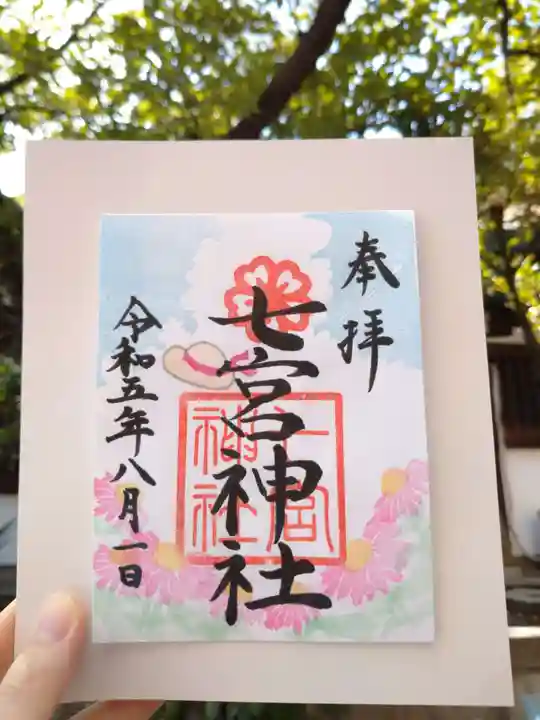 奉拝
七宮神社
七宮
神社
令和五年八月一日